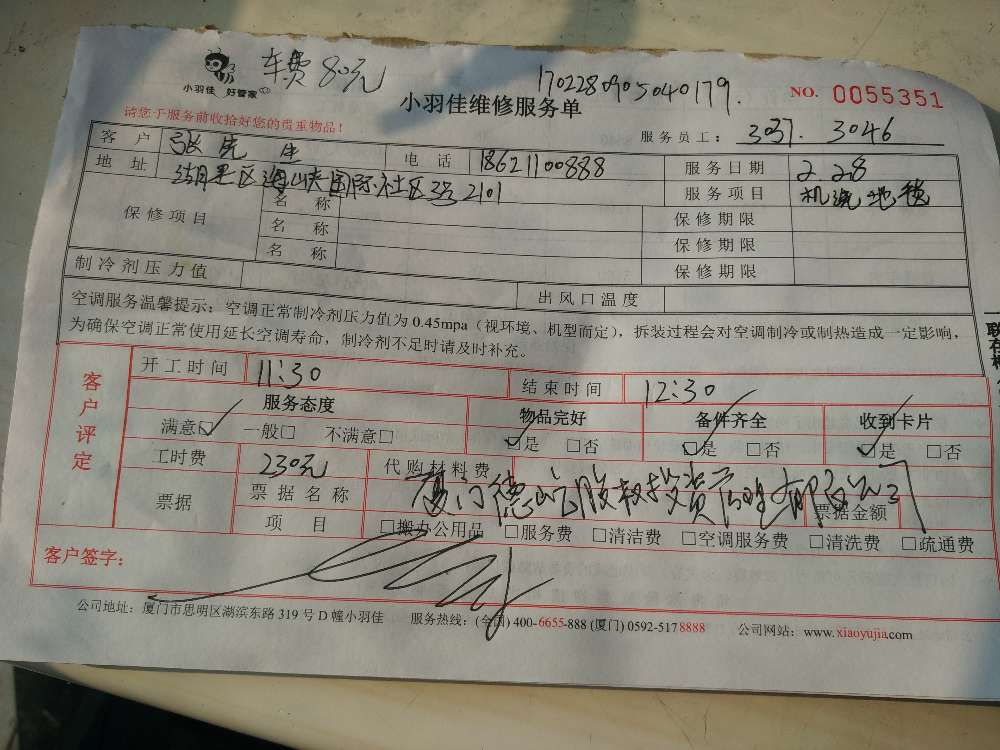 车费 80元
1702280905040179.
小羽佳 好管家
小羽佳维修服务单
NO. 0055351
请您于服务前收拾好您的贵重物品！
服务员工： 3037. 3046
客 户 张先生 电 话 18621100888 服务日期 2.28
地 址 湖里区海峡国际社区 2101 服务项目 机洗地毯
保修项目 名 称 保修期限
名 称 保修期限
名 称 保修期限
制冷剂压力值 出风口温度
空调服务温馨提示：空调正常制冷剂压力值为 0.45mpa（视环境、机型而定），拆装过程会对空调制冷或制热造成一定影响，
为确保空调正常使用延长空调寿命，制冷剂不足时请及时补充。
客户评定
开工时间 11:30 结束时间 12:30
服务态度 物品完好 备件齐全 收到卡片
满意☑ 一般□ 不满意□ ☑是 □否 ☑是 □否 ☑是 □否
工时费 230元 代购材料费
票据 票据名称 厦门德 股权投资管理有限公司 票据金额
项 目 □搬办公用品 □服务费 □清洁费 □空调服务费 □清洗费 □疏通费
客户签字：
公司地址：厦门市思明区湖滨东路 319 号 D 幢小羽佳 服务热线：(全国) 400-6655-888 (厦门) 0592-5178888 公司网站：www.xiaoyujia.com